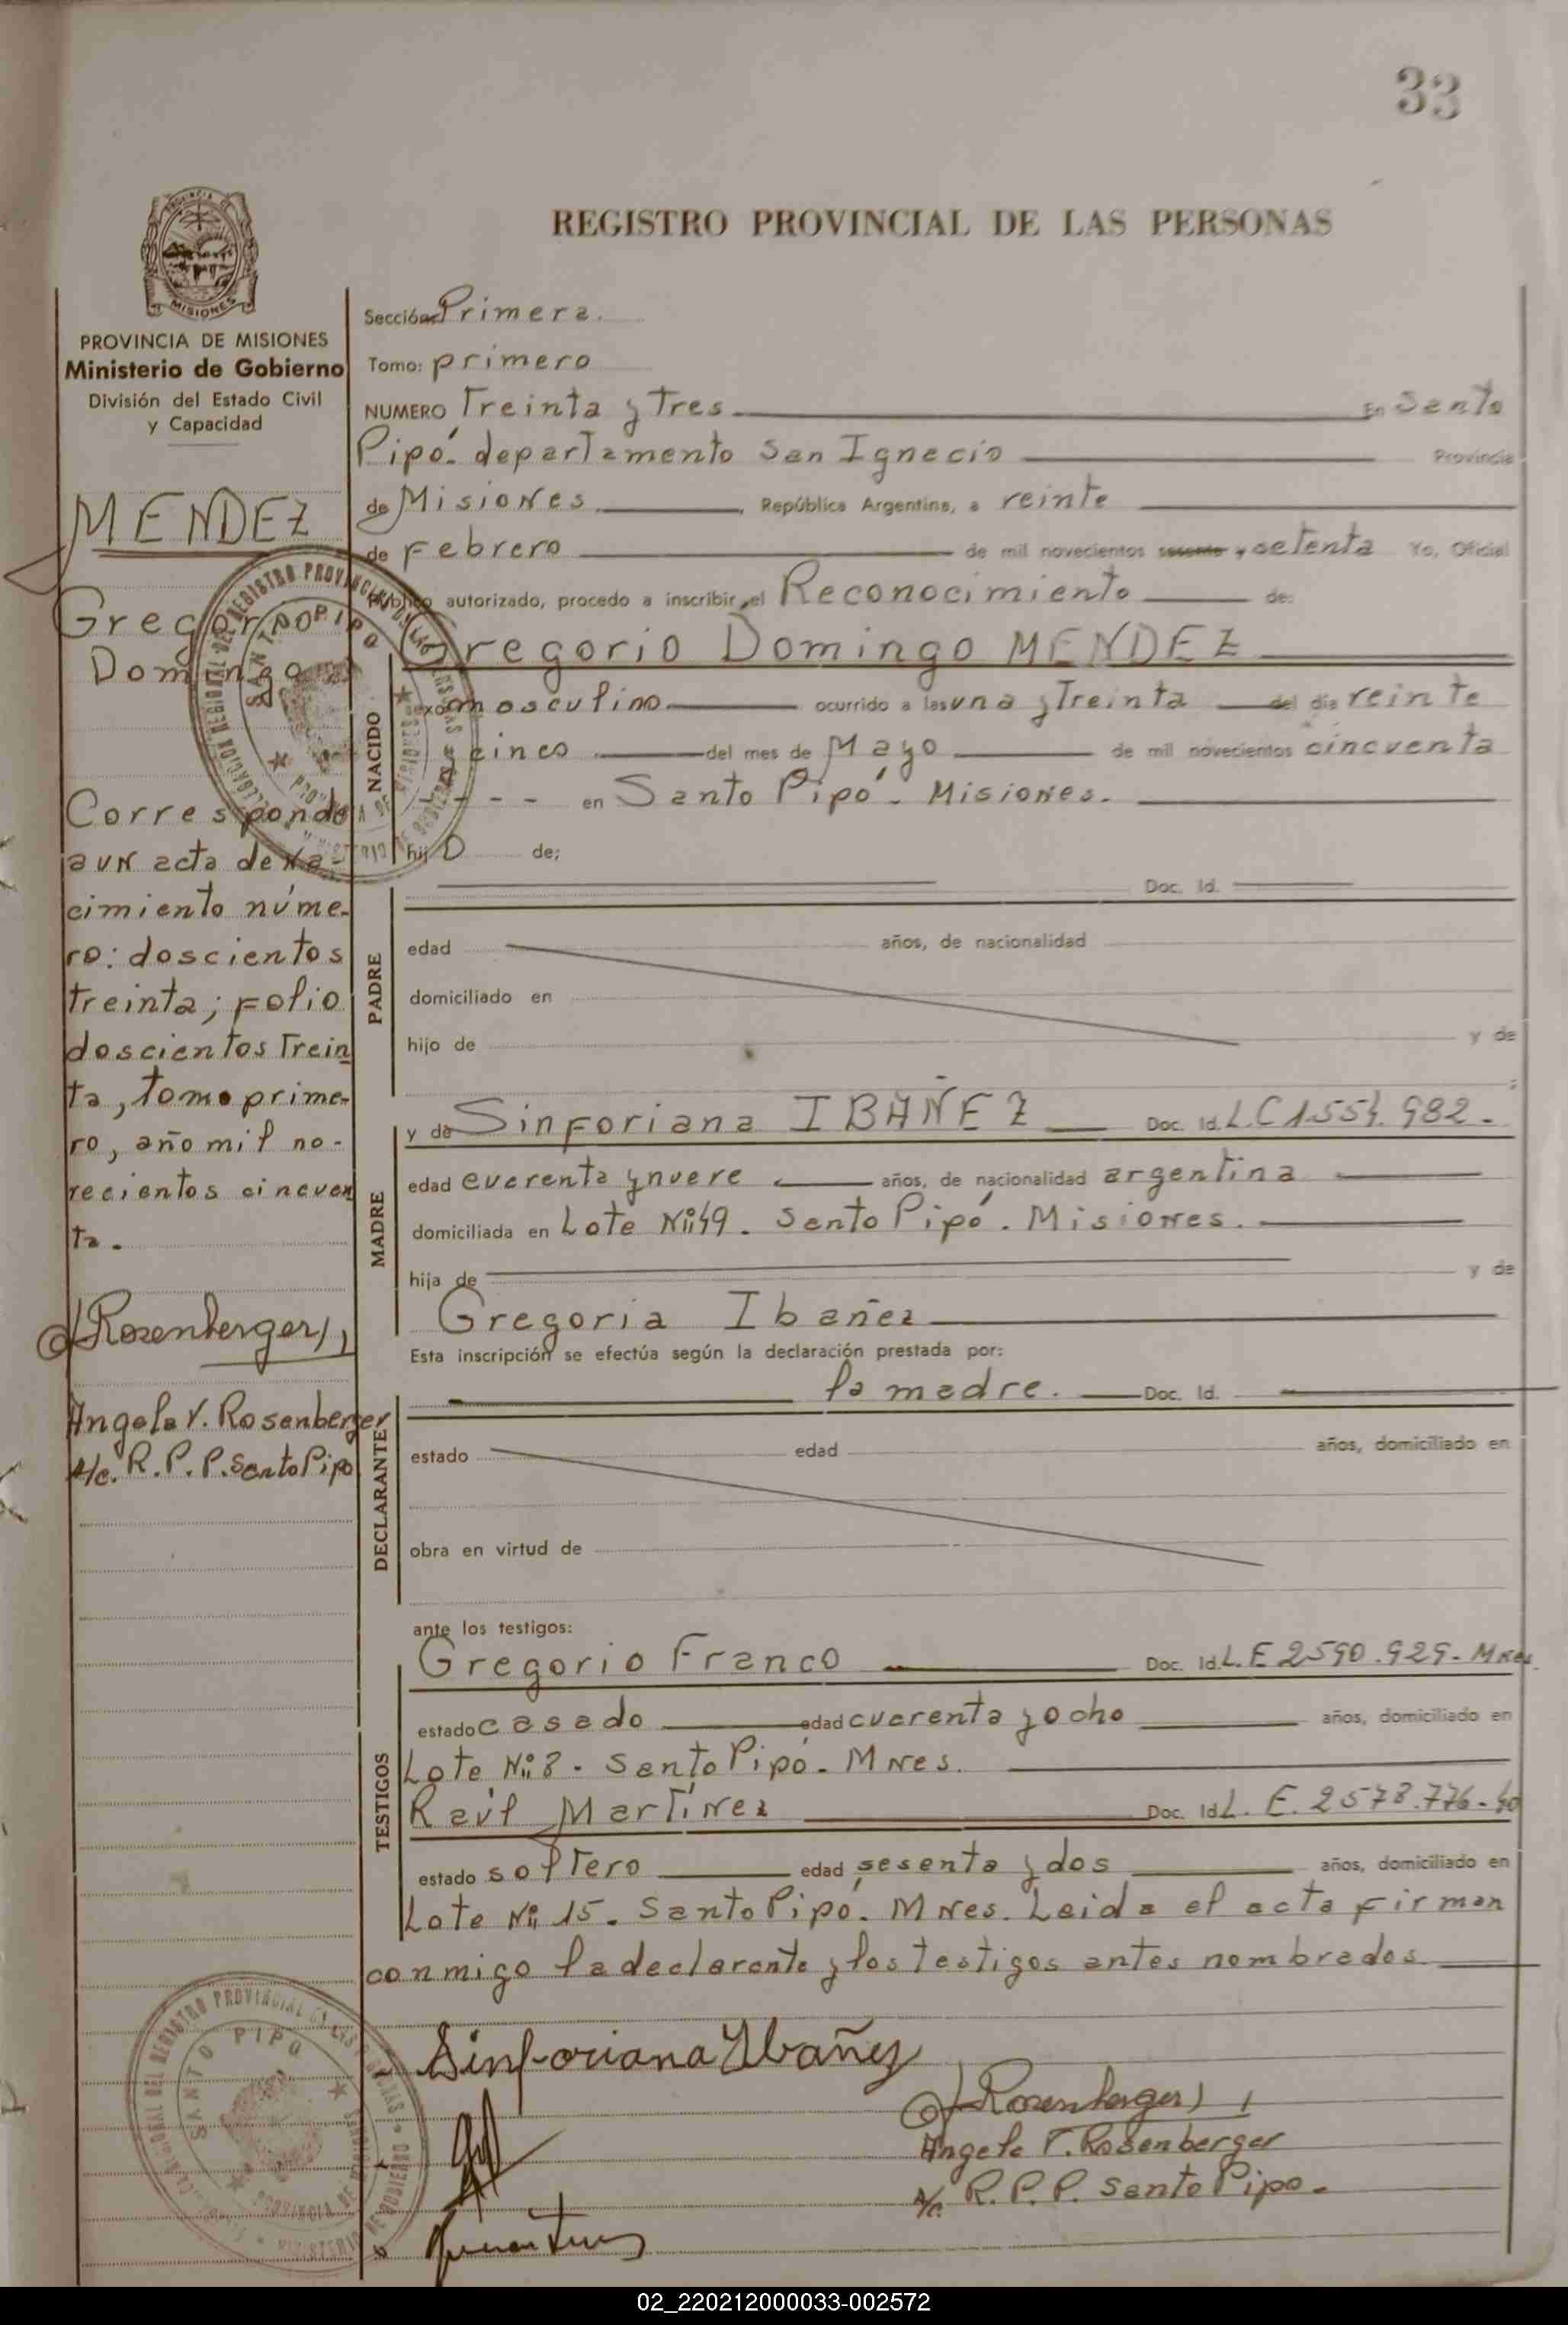 33
REGISTRO PROVINCIAL DE LAS PERSONAS
MISIONES
PROVINCIA DE MISIONES
Ministerio de Gobierno
División del Estado Civil
y Capacidad
MENDEZ
Gregorio
Domingo
Corresponde
a un acta de na-
cimiento núme-
ro: doscientos
treinta; folio
doscientos Trein
ta, tomo prime-
ro, año mil no-
vecientos cincuen
ta.
Rosenberger
Angela V. Rosenberger
A/c. R. P. P. Santo Pipo
Sección Primera.
Tomo: primero
NUMERO Treinta y Tres En Santo
Pipó. departamento San Ignacio Provincia
de Misiones, República Argentina, a veinte
de Febrero de mil novecientos sesenta y setenta Yo, Oficial
Público autorizado, procedo a inscribir el Reconocimiento de:
Gregorio Domingo MENDEZ
NACIDO
sexo masculino ocurrido a las una y Treinta del día veinte
cinco del mes de Mayo de mil novecientos cincuenta
- - - en Santo Pipó. Misiones.
hijo de;
Doc. Id.
PADRE
edad años, de nacionalidad
domiciliado en
hijo de y de
MADRE
y de Sinforiana IBAÑEZ Doc. Id. L.C 1.554.982.-
edad cuarenta y nueve años, de nacionalidad argentina
domiciliada en Lote Nº 49. Santo Pipó. Misiones.
hija de y de
Gregoria Ibañez
Esta inscripción se efectúa según la declaración prestada por:
la madre. Doc. Id.
DECLARANTE
estado edad años, domiciliado en
obra en virtud de
ante los testigos:
TESTIGOS
Gregorio Franco Doc. Id. L.E 2590.929- Mnes.
estado casado edad cuarenta y ocho años, domiciliado en
Lote Nº 8. Santo Pipó. Mnes.
Raúl Martínez Doc. Id. L. E. 2578.776-
estado soltero edad sesenta y dos años, domiciliado en
Lote Nº 15. Santo Pipó. Mnes. Leida el acta firman
conmigo la declarante y los testigos antes nombrados.
Sinforiana Ybañez
Rosenberger
Angela V. Rosenberger
A/c. R. P. P. Santo Pipo.
SANTO PIPO
02_220212000033-002572